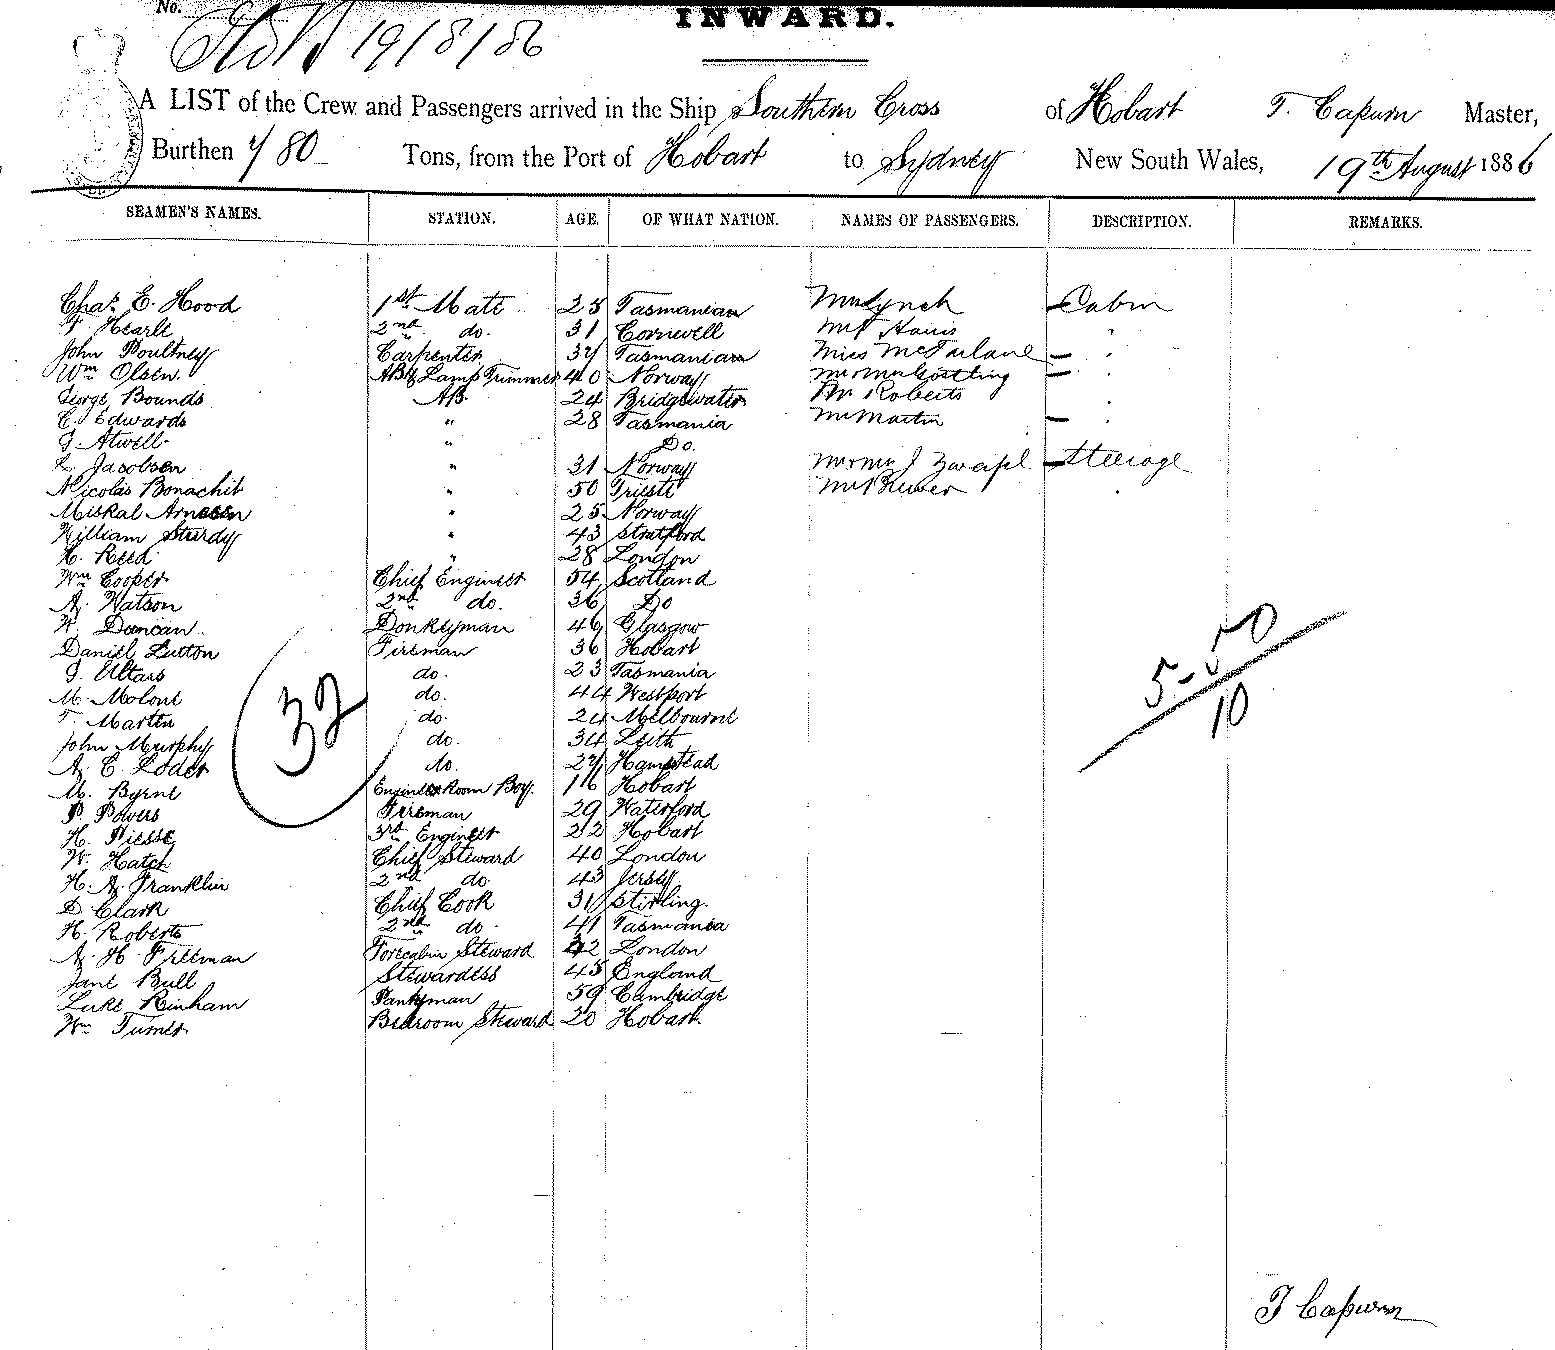 No.
INWARD.
19/8/86
A LIST of the Crew and Passengers arrived in the Ship Southern Cross of Hobart T. Capurn Master,
Burthen 780 Tons, from the Port of Hobart to Sydney New South Wales, 19th August 1886
SEAMEN'S NAMES. STATION. AGE. OF WHAT NATION. NAMES OF PASSENGERS. DESCRIPTION. REMARKS.
Chas. E. Hood 1st Mate 25 Tasmanian Mr Lynch Cabin
F Hearle 2nd do. 31 Cornwell Mrs Harris "
John Poultney Carpenter 37 Tasmanian Miss McFarlane "
Wm Olsen. AB & Lamp Trimmer 40 Norway Mr Mrs Gostling "
George Bounds AB. 24 Bridgewater Mr Roberts
C. Edwards " 28 Tasmania Mr Martin "
G. Atwell " Do.
L. Jacobsen " 31 Norway Mr Mrs J Steerage
Nicolas Bonachit " 50 Trieste "
Miskal Arnesen " 25 Norway
William Sturdy " 43 Stratford
H. Reed " 28 London
Wm Cooper Chief Engineer 54 Scotland
A. Watson 2nd do. 36 Do
W. Duncan Donkeyman 46 Glasgow
Daniel Lutton Fireman 36 Hobart
J. Ultars do. 23 Tasmania
M. Molone do. 44 Westport
F. Martin do. 24 Melbourne
John Murphy do. 34 Leith
A. E. Loder do. 27 Hampstead
M. Byrne Engineer Room Boy. 16 Hobart
P. Powers Fireman 29 Waterford
H. Piesse 3rd Engineer 22 Hobart
W. Hatch Chief Steward 40 London
H. A. Franklin 2nd do. 43 Jersey
D Clark Chief Cook 31 Stirling.
H. Roberts 2nd do. 41 Tasmania
A. H. Freeman Forecabin Steward 42 London
Jane Bull Stewardess 45 England
Luke Rinham Pantryman 59 Cambridge
Wm Turner Bedroom Steward 20 Hobart.
32
5-50
10
T Capurn